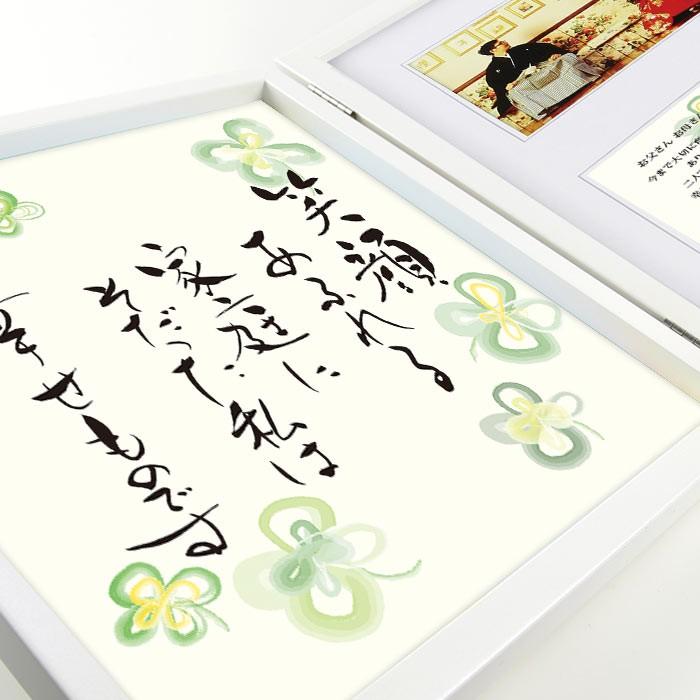 笑顔
あふれる
家庭に
そだった私は
幸せものです
お父さん お母さ
今まで大切に
あ
二人